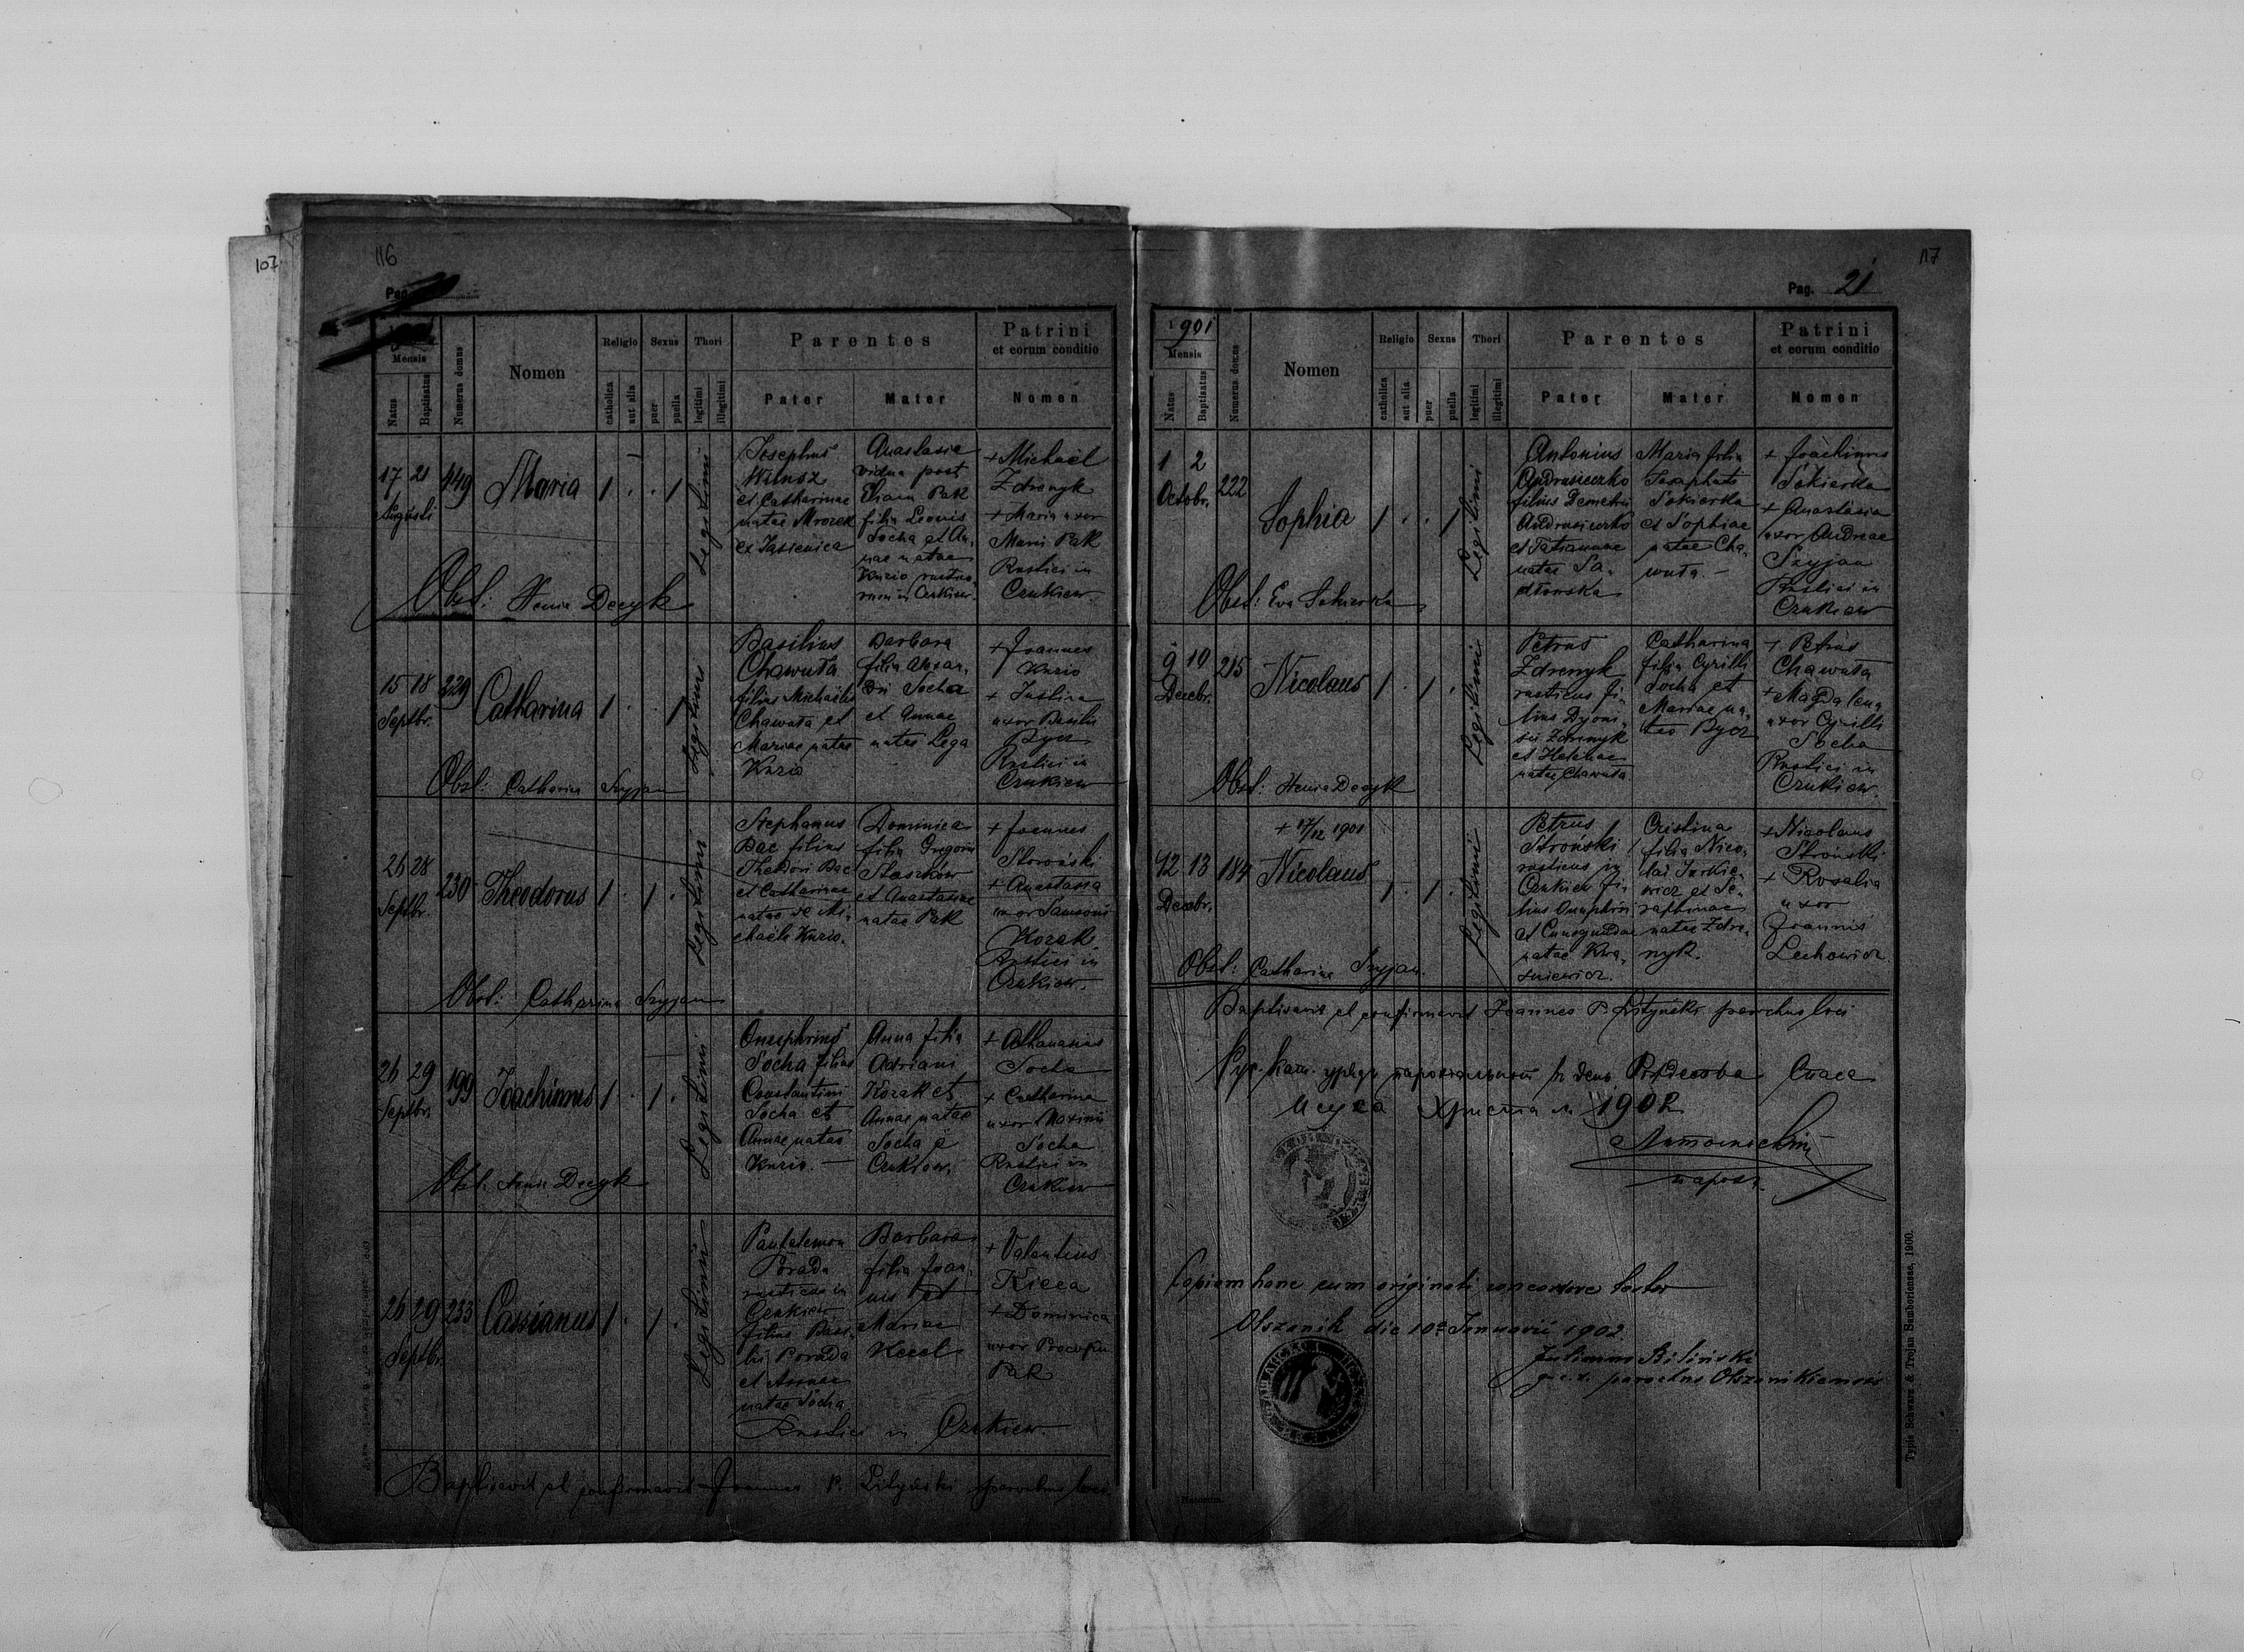 107
116
Pag.
Mensis
Natus
Baptisatus
Numerus domus
Nomen
Religio
catholica
aut alia
Sexus
puer
puella
Thori
legitimi
illegitimi
Parentes
Pater
Mater
Patrini
et eorum conditio
Nomen
17 21
Augusti
449
Maria
1 . . 1
Legitimi
Josephus
et Catharinae
natae Mrozek
ex Jasienica
Anastasia
vidua post
Pak
filia Leonis
Socha et An-
nae natae
Kuzio rustico-
rum in Czukiew.
+ Michaël
Zdrenyk
+ Maria uxor
Pak
Rustici in
Czukiew
Obst: Henia Decyk
15 18
Septbr.
229
Catharina
1 . . 1
Legitimi
Basilius
Chawuta
filius Michaëlis
Chawuta et
Mariae natae
Kuzio
Barbara
filia Alexan-
dri Socha
et Annae
natae Lega
+ Joannes
Kuzio
+ Justina
uxor Basilii
Pycz
Rustici in
Czukiew
Obst: Catharina Szyjan
26 28
Septbr.
230
Theodorus
1 . 1 .
Legitimi
Stephanus
Bac filius
Theodori Bac
et Catharinae
natae de Mi-
chaële Kuzio.
Dominica
filia Gregorii
Staszkow
et Anastasiae
natae Pak
+ Joannes
Stroński
+ Anastasia
uxor Samsonis
Kozak
Rustici in
Czukiew.
Obst: Catharina Szyjan
26 29
Septbr.
199
Joachimus
1 . 1 .
Legitimi
Onuphrius
Socha filius
Constantini
Socha et
Annae natae
Kuzio. —
Anna filia
Adriani
Kozak et
Annae natae
Socha e
Czukiew.
+ Athanasius
Socha
+ Catharina
uxor Maximi
Socha
Rustici in
Czukiew
Obst: Henia Decyk
26 29
Septbr.
233
Cassianus
1 . 1 .
Legitimi
Pantelemon
Porada
rusticus in
Czukiew
filius Basi-
lii Porada
et Annae
natae Socha
Barbara
filia Joan-
nis et
Mariae
+ Valentius
Kicca
+ Dominica
uxor Procopii
Pak
Rustici in Czukiew.
Baptisavit et confirmavit Joannes P. Lityński parochus loci
117
Pag. 21
1901
Mensis
Natus
Baptisatus
Numerus domus
Nomen
Religio
catholica
aut alia
Sexus
puer
puella
Thori
legitimi
illegitimi
Parentes
Pater
Mater
Patrini
et eorum conditio
Nomen
1 2
Octobr.
222
Sophia
1 . . 1
Legitimi
Antonius
Andrusieczko
filius Demetrii
Andrusieczko
et Tatiannae
natae Sa-
dłowska
Maria filia
Josaphati
Sokierka
et Sophiae
natae Cha-
wuta. —
+ Joachimus
Sokierka
+ Anastasia
uxor Andreae
Szyjan
Rustici in
Czukiew
Obst: Eva Sokierka
9 10
Decebr.
215
Nicolaus
1 . 1 .
Legitimi
Petrus
Zdrenyk
rusticus fi-
lius Dyoni-
sii Zdrenyk
et Helenae
natae Chawuta
Catharina
filia Cyrilli
Socha et
Mariae na-
tae Pycz
+ Petrus
Chawuta
+ Magdalena
uxor Cyrilli
Socha
Rustici in
Czukiew.
Obst: Henia Decyk
+ 17/12 1901
12 13
Decebr.
184
Nicolaus
1 . 1 .
Legitimi
Petrus
Stroński
rusticus in
Czukiew fi-
lius Onuphrii
et Cunegundae
natae Kwa-
śniewicz.
Cristina
filia Nico-
lai Jurkie-
wicz et Se-
raphinae
natae Zdre-
nyk.
+ Nicolaus
Stroński
+ Rosalia
uxor
Joannis
Lechowicz
Obst: Catharina Szyjan.
Baptisavit et confirmavit Joannes P. Lityński parochus loci
день Рождества Спаса
Исуса Христа 1902
парох.
Copiam hanc cum originali concordare testor
Olszanik die 10a Januarii 1902.
Julianus Biliński
g. c. r. parochus Olszanikiensis
Natorum.
Typis Schwarz & Trojan Samboriensae, 1900.